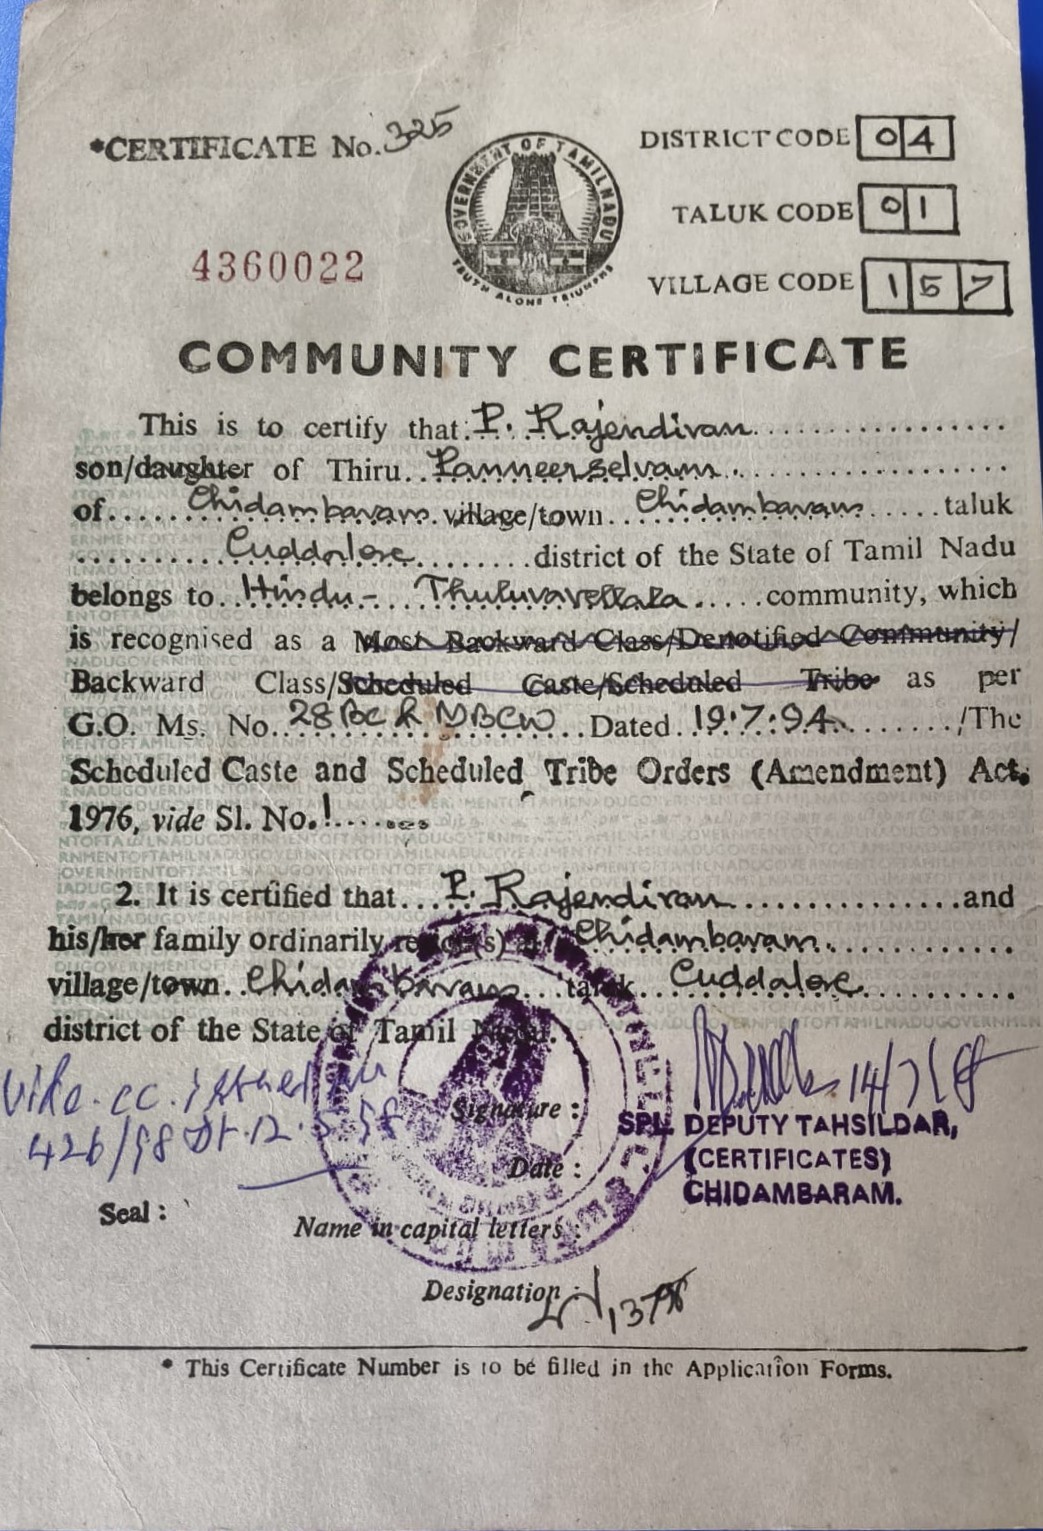 *CERTIFICATE No. 325
GOVERNMENT OF TAMILNADU
TRUTH ALONE TRIUMPHS
DISTRICT CODE 04
TALUK CODE 01
VILLAGE CODE 157
4360022
COMMUNITY CERTIFICATE
This is to certify that P. Rajendiran
son/daughter of Thiru Panneerselvam
of Chidambaram village/town Chidambaram taluk
Cuddalore district of the State of Tamil Nadu
belongs to Hindu - Thuluvavellala community, which
is recognised as a Most Backward Class/Denotified Community/
Backward Class/Scheduled Caste/Scheduled Tribe as per
G.O. Ms. No. 28 BC & MBCW Dated 19.7.94 /The
Scheduled Caste and Scheduled Tribe Orders (Amendment) Act,
1976, vide Sl. No.
2. It is certified that P. Rajendiran and
his/her family ordinarily reside(s) at Chidambaram
village/town Chidambaram taluk Cuddalore
district of the State of Tamil Nadu.
Vide. CC. issued
426/98 Dt. 12.
Signature :
SPL. DEPUTY TAHSILDAR,
(CERTIFICATES)
CHIDAMBARAM.
Date :
Seal :
Name in capital letters :
Designation :
* This Certificate Number is to be filled in the Application Forms.